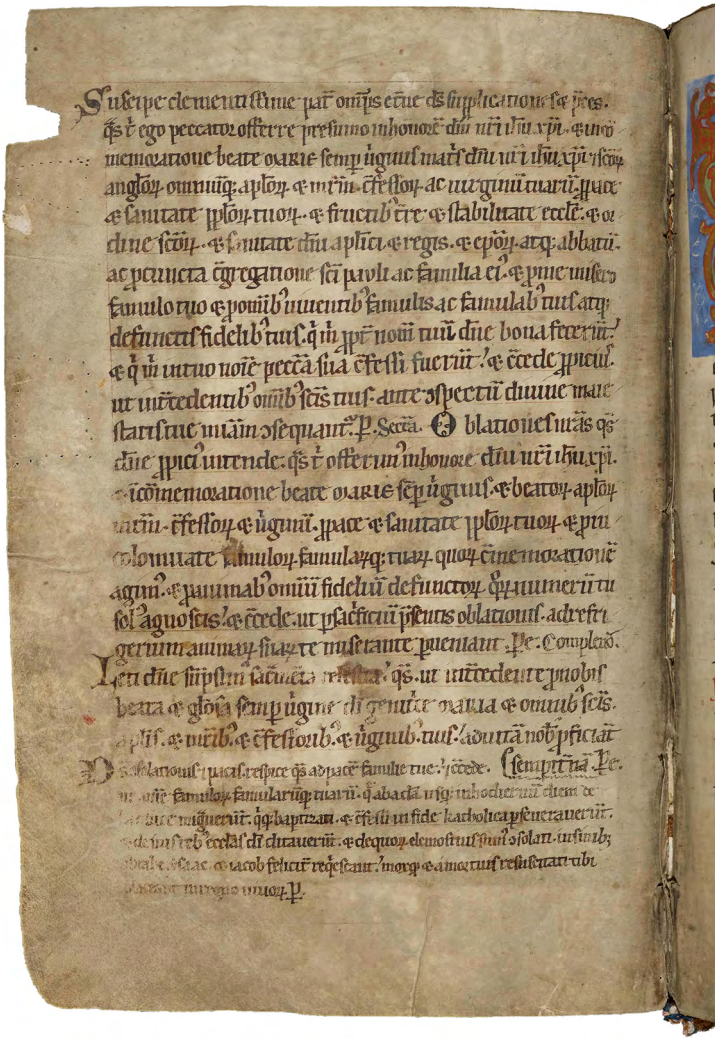 Suscipe clementissime pat̄ omp̄s et̄ne ds̄ supplicationes & p̄ces.
q̄s t̄ ego peccator offerre presumo inhonorē dn̄i nr̄i ihū xp̄i. & incō
memoratione beate marie semꝑ ūginis mat̄s dn̄i nr̄i ihū xp̄i ⁊ scōꝝ
angl̄oꝝ omniūq; apl̄oꝝ & mr̄m. c̄fessoꝝ ac uirginū tuarū. ꝓpace
& sanitate ppl̄oꝝ tuoꝝ. & fructib; t̄re & stabilitate eccl̄e. & or
dine scōꝝ. & sanitate dn̄i aplici & regis. & ep̄oꝝ. atq; abbatū.
ac ꝓcuncta c̄gregatione sc̄i pauli ac familia ei᾿. & ꝓme misero
famulo tuo & ꝓomīb; uiuentib; famulis ac famulab; tuis atq;
defunctis fidelib; tuis. q̄ m̄ ꝓpt̄ nom̄ tuū dn̄e bona fecerūt.
& q̄ m̄ intuo noīe pecc̄a sua c̄fessi fuerūt. & c̄cede ꝓpicius.
ut int̄cedentib; omīb; sc̄is tuis. ante ꝯspectū diuine maie
statis tue ueniam ꝯsequant᾿. P̄. Secr̄a. Oblationes nr̄as q̄s
dn̄e ꝓpici᾿ intende. q̄s t̄ offerim᾿ inhonore dn̄i nr̄i ihū xp̄i.
& incōmemoratione beate marie sēꝑ ūginis. & beatoꝝ. apl̄oꝝ
mr̄m. c̄fessoꝝ & ūginū. ꝓpace & sanitate ppl̄oꝝ tuoꝝ. & ꝓin
colomitate famuloꝝ famulaꝝq; tuaꝝ quoꝝ c̄memorationē
agim᾿. & ꝓanimab; omniū fidelium defunctoꝝ quoꝝ numerū tu
sol᾿ agnoscis. & c̄cede. ut ꝑsac̄ficiū p̄sentis oblationis. adrefri
gerium animaꝝ suaꝝ te miserante ꝑueniant. P̄c. Complend̄.
Leti dn̄e sūpsim᾿ sac̄menta celestia q̄s. ut int̄cedente ꝓnobis
beata & gl̄osa semꝑ ūgine di genitrice maria & omnib; sc̄is.
aplis. & mr̄ib; & c̄fessorib; & ūginib; tuis. aduitā nob̄ ꝓficiāt
consolationis ⁊ pacis. respice q̄s adpacē familie tue. ⁊ c̄cede. sempit̄nā. P̄c.
famuloꝝ famularūq; tuarū. q̄ abadā usq; inhodiernū diem de
hac luce migūerūt. q̄q; baptizati. & c̄fessi in fide katholica ꝑseuerauerūt.
eccl̄as di ditauerūt. & dequoꝝ elemosinis sum᾿ ꝯsolati. in sinib;
isaac. & iacob felicit̄ req̄escant. morq; & amortuis resuscitati tibi
placeant in regno uiuoꝝ. P̄.